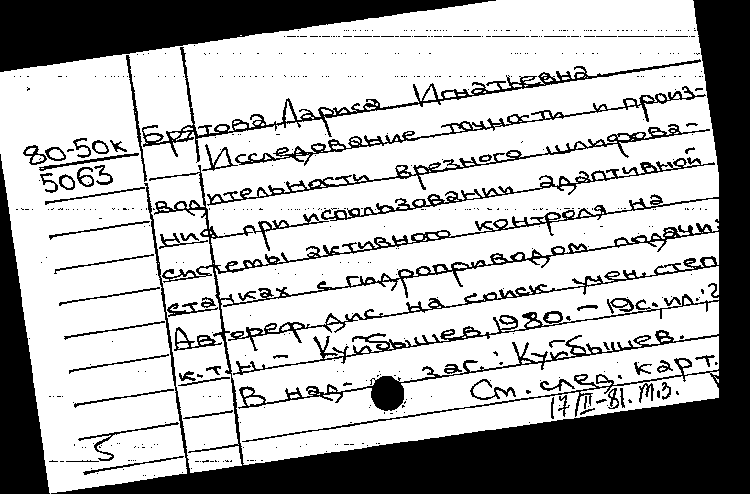 80-50к
5063
Брятова, Лариса Игнатьевна.
Исследование точности и произ-
водительности врезного шлифова-
ния при использовании адаптивной
системы активного контроля на
станках с гидроприводом подачи:
Автореф. дис. на соиск. учен. степ
к.т.н. - Куйбышев, 1980. - 19с., ил.; 2
В над- заг.: Куйбышев.
См. след. карт.
17/II-81. т.з.
5